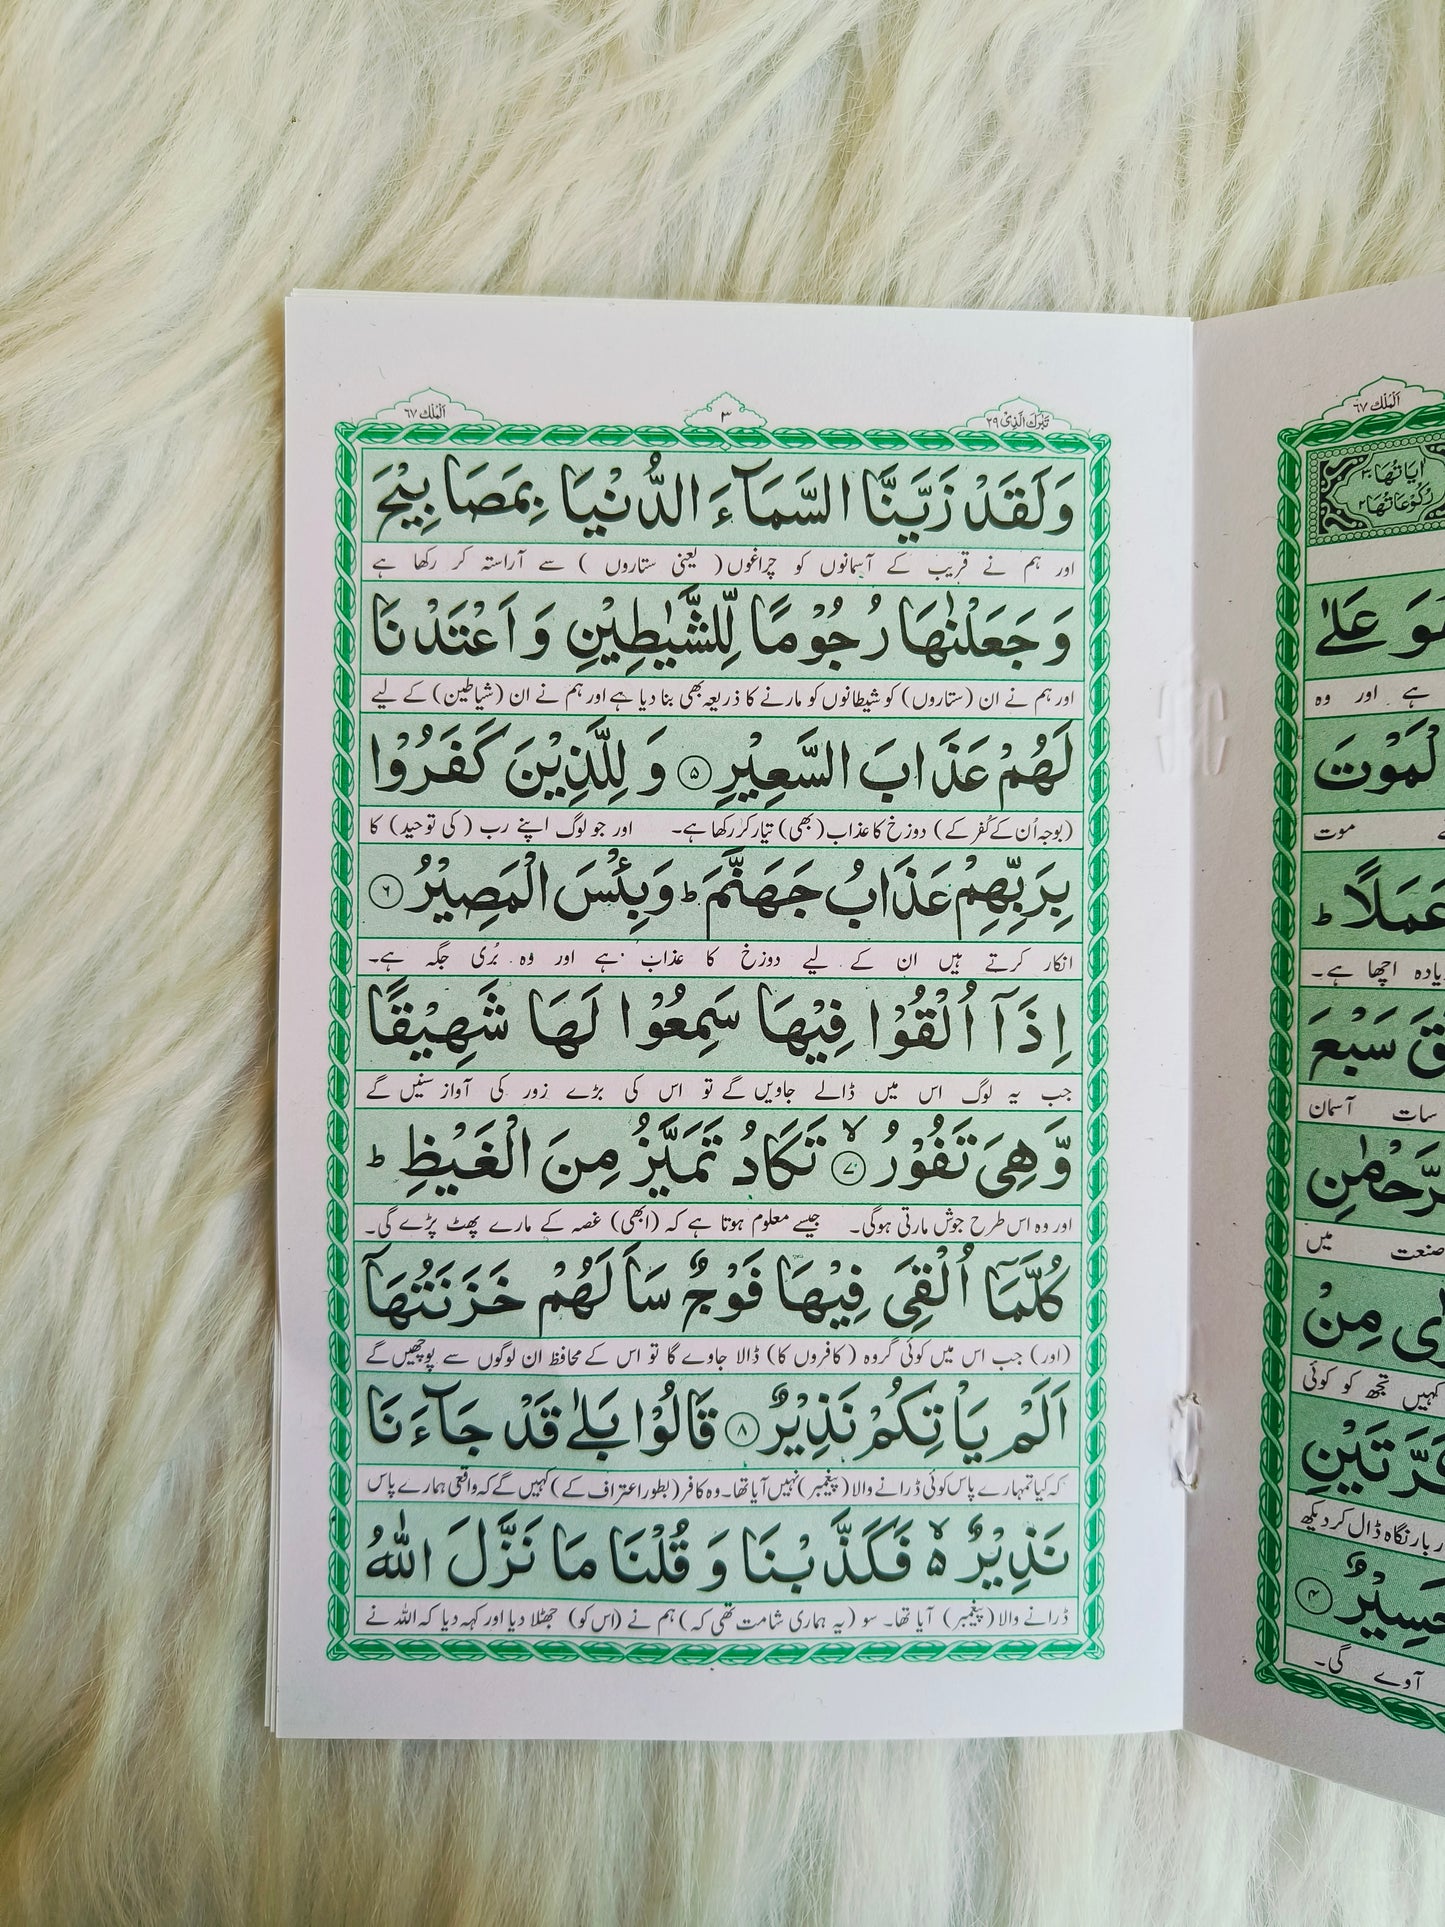 تَبٰرَكَ الَّذِیْ ٢٩
٣
اَلْمُلْك ٦٧
وَلَقَدْ زَيَّنَّا السَّمَآءَ الدُّنْيَا بِمَصَابِيْحَ
اور ہم نے قریب کے آسمانوں کو چراغوں ( یعنی ستاروں ) سے آراستہ کر رکھا ہے
وَ جَعَلْنٰهَا رُجُوْمًا لِّلشَّيٰطِيْنِ وَ اَعْتَدْنَا
اور ہم نے ان (ستاروں) کو شیطانوں کو مارنے کا ذریعہ بھی بنا دیا ہے اور ہم نے ان (شیاطین) کے لیے
لَهُمْ عَذَابَ السَّعِيْرِ ۵ وَ لِلَّذِيْنَ كَفَرُوْا
(بوجہ اُن کے کُفر کے) دوزخ کا عذاب (بھی) تیار کر رکھا ہے۔ اور جو لوگ اپنے رب (کی توحید) کا
بِرَبِّهِمْ عَذَابُ جَهَنَّمَ ؕ وَبِئْسَ الْمَصِيْرُ ۶
انکار کرتے ہیں ان کے لیے دوزخ کا عذاب ہے اور وہ بُری جگہ ہے۔
اِذَآ اُلْقُوْا فِيْهَا سَمِعُوْا لَهَا شَهِيْقًا
جب یہ لوگ اس میں ڈالے جاویں گے تو اس کی بڑے زور کی آواز سنیں گے
وَّ هِيَ تَفُوْرُ ۷ ۙ تَكَادُ تَمَيَّزُ مِنَ الْغَيْظِ ؕ
اور وہ اس طرح جوش مارتی ہوگی۔ جیسے معلوم ہوتا ہے کہ (ابھی) غصہ کے مارے پھٹ پڑے گی۔
كُلَّمَآ اُلْقِيَ فِيْهَا فَوْجٌ سَاَلَهُمْ خَزَنَتُهَآ
(اور) جب اس میں کوئی گروہ (کافروں کا) ڈالا جاوے گا تو اس کے محافظ ان لوگوں سے پوچھیں گے
اَلَمْ يَاْتِكُمْ نَذِيْرٌ ۸ قَالُوْا بَلٰى قَدْ جَآءَنَا
کہ کیا تمہارے پاس کوئی ڈرانے والا (پیغمبر) نہیں آیا تھا۔ وہ کافر (بطور اعتراف کے) کہیں گے کہ واقعی ہمارے پاس
نَذِيْرٌ ۙ۵ فَكَذَّبْنَا وَ قُلْنَا مَا نَزَّلَ اللّٰهُ
ڈرانے والا (پیغمبر) آیا تھا۔ سو (یہ ہماری شامت تھی کہ) ہم نے (اس کو) جھٹلا دیا اور کہہ دیا کہ اللہ نے
اَلْمُلْك ٦٧
اٰيَاتُهَا ٣٠
رُكُوْعَاتُهَا ٢
هُوَ عَلٰى
ہے اور وہ
الْمَوْتَ
موت
عَمَلًا ؕ
زیادہ اچھا ہے۔
سَبْعَ
سات آسمان
الرَّحْمٰنِ
صنعت میں
مِنْ
کہیں تجھ کو کوئی
كَرَّتَيْنِ
بار نگاہ ڈال کر دیکھ
حَسِيْرٌ ۴
آوے گی۔